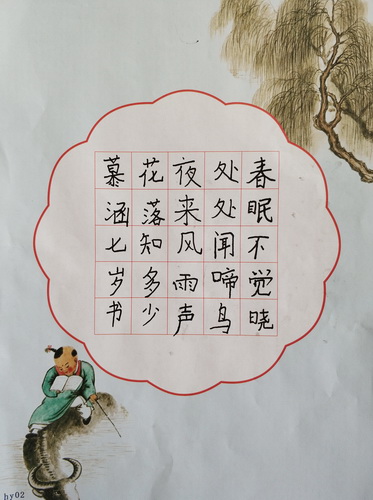 春眠不觉晓
处处闻啼鸟
夜来风雨声
花落知多少
慕涵七岁书
hy02